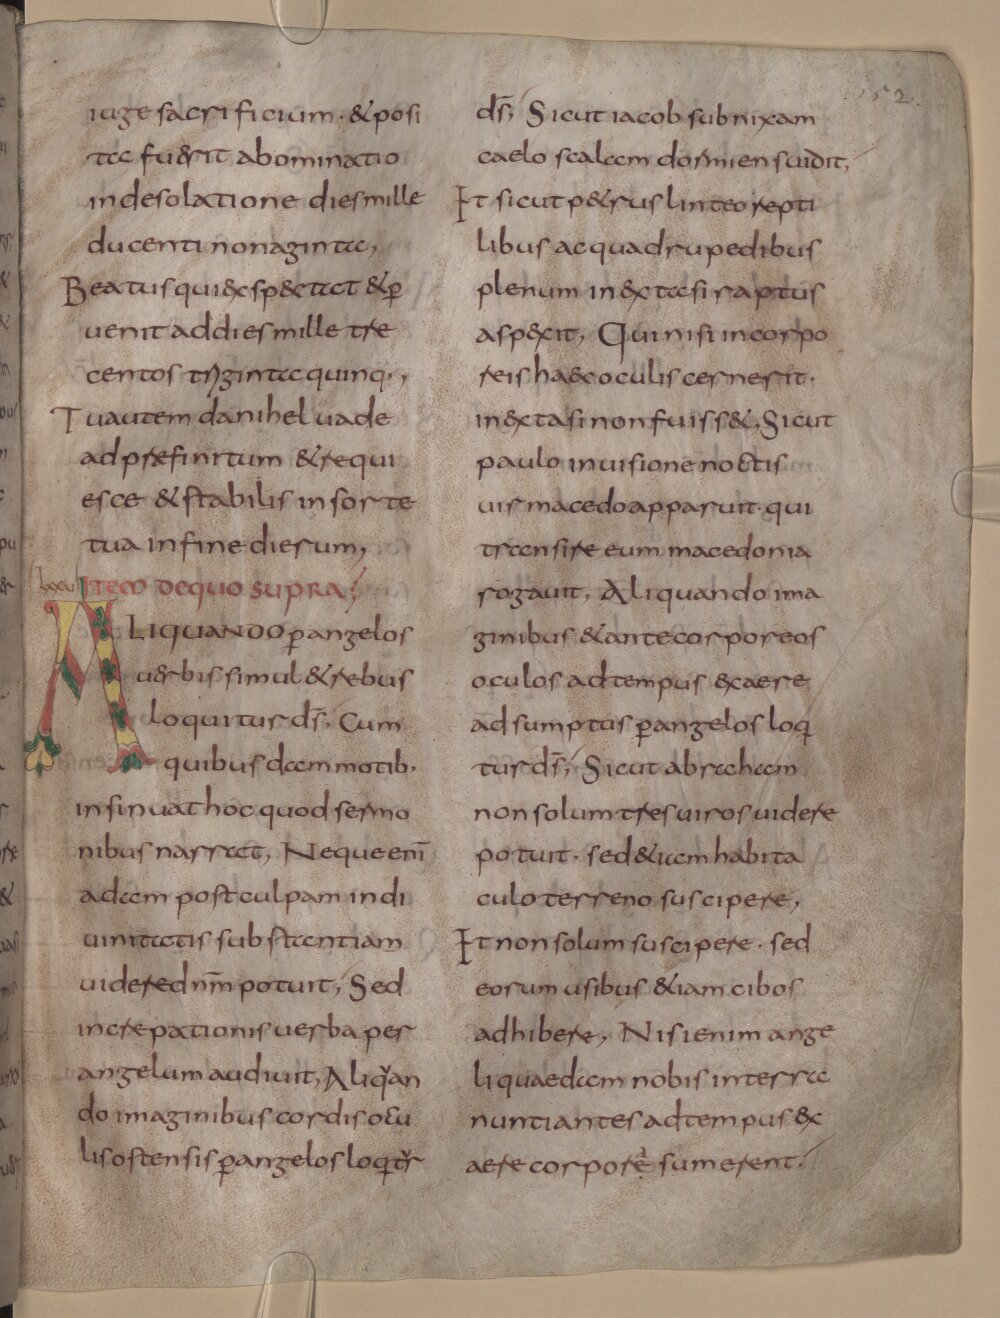 152.
iuge sacrificium · & posi
ta fu&rit abominatio
in desolatione dies mille
ducenti nonaginta,
Beatus qui exsp&ctat & p̱
uenit ad dies mille tre
centos triginta quinq·,
Tu autem danihel uade
ad prefinitum & requi
esce & stabilis in sorte
tua in fine dierum,
lxxu ITEM DE QUO SUPRA;
ALIQUANDO p̱ angelos
uerbis simul & rebus
loquitur ds̄, Cum
quibusdam motib·
insinuat hoc quod sermo
nibus narrat, Neque enī
adam post culpam in di
uinitatis substantiam
uidere dnm̄ potuit, Sed
increpationis uerba per
angelum audiuit, Aliqᵃan
do imaginibus cordis ocu
lis ostensis p̱ angelos loqͥtr
ds̄; Sicut iacob subnixam
caelo scalam dormiens uidit,
It sicut p&rus linteo repti
libus ac quadrupedibus
plenum in extasi raptus
aspexit, Qui nisi incorpo
reis haec oculis cernerit·
in extasi non fuiss&, Sicut
paulo in uisione noctis
uir macedo apparuit· qui
transire eum macedonia
rogauit, Aliquando ima
ginibus & ante corporeos
oculos ad tempus ex aere
adsumptus p̱ angelos loqͥ
tur ds̄; Sicut abraham
non solum tres uiros uidere
potuit· sed &iam habita
culo terreno suscipere,
It non solum suscipere· sed
eorum usibus &iam cibos
adhibere, Nisi enim ange
li quaedam nobis interna
nuntiantes ad tempus ex
aere corpore sumerent·